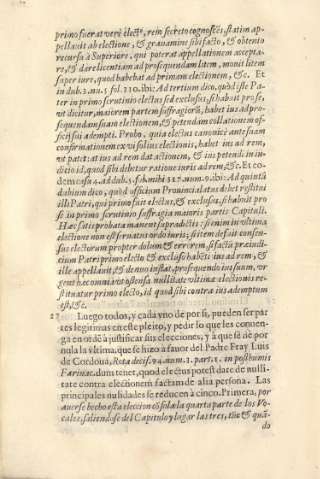 primo fuerat verè elect⁹, rein secreto cognoscēs, statim ap-
pellauit ab electione, & grauamine sibi facto, & obtento
recursu à Superiore, qui poterat appellationem accepta-
re, & dare licentiam ad prosequendam litem, monit litem
super iure, quod habebat ad primam electionem, &c. Et
in dub. 2. nu. 5 fol. 210. ibi: Ad tertium dico, quòd iste Pa-
ter in primo scrutinio electus sed exclusus, si habuit prose,
vt dicitur, maiorem partem suffragiorū, habet ius ad pro-
sequendam suam electionem, & petendam collationem of-
ficij sui adempti. Probo, quia electus canonicè ante suam
confirmationem ex vi solius electionis, habet ius ad rem,
vt patet: at ius ad rem dat actionem, & ius petendi in iu-
ditio id, quod sibi debitur ratione iuris ad rem, &c. Et eo-
dem casu 4. ad dub. 5. fol. mihi 327. num. 9. ibi: Ad quintū
dubium dico, quòd officium Prouincialatus debet restitui
illi Patri, qui primo fuit electus, & exclusus, si habuit pro
se in primo scrutinio suffragia maioris partis Capituli.
Hæc satis probata manent supra dictis: si enim in vltima
electione non est seruatus ordo iuris; si item defuit consen-
sus electorum propter dolum & errorem, si facta præiudi-
cium Patri primo electo & excluso habēti ius ad rem, &
ille appellauit, & denuo instat, prosequendo ius suum, vr
gent hæc omnia vt ostensa nullitate vltimæ electionis re-
stituatur primo electo, id quod sibi contra ius ademptum
est, &c.
27 Luego todos, y cada vno de por si, pueden ser par
tes legitimas en este pleito, y pedir lo que les conuen-
ga en ordē à justificar sus elecciones, y à que se dè por
nula la vltima, que se hizo à fauor del Padre Fray Luis
de Cordoua, Rota decis. 94. num. 3. part. 1. in posthumis
Farinac. dum tenet, quod electus potest dicere de nulli-
tate contra electionem factam de alia persona. Las
principales nulidades se reducen à cinco. Primera, por
auerse hecho esta eleccion cō sola la quarta parte de los Vo-
cales, saliendose del Capitulo y lugar las tres, tūc & quā-
do